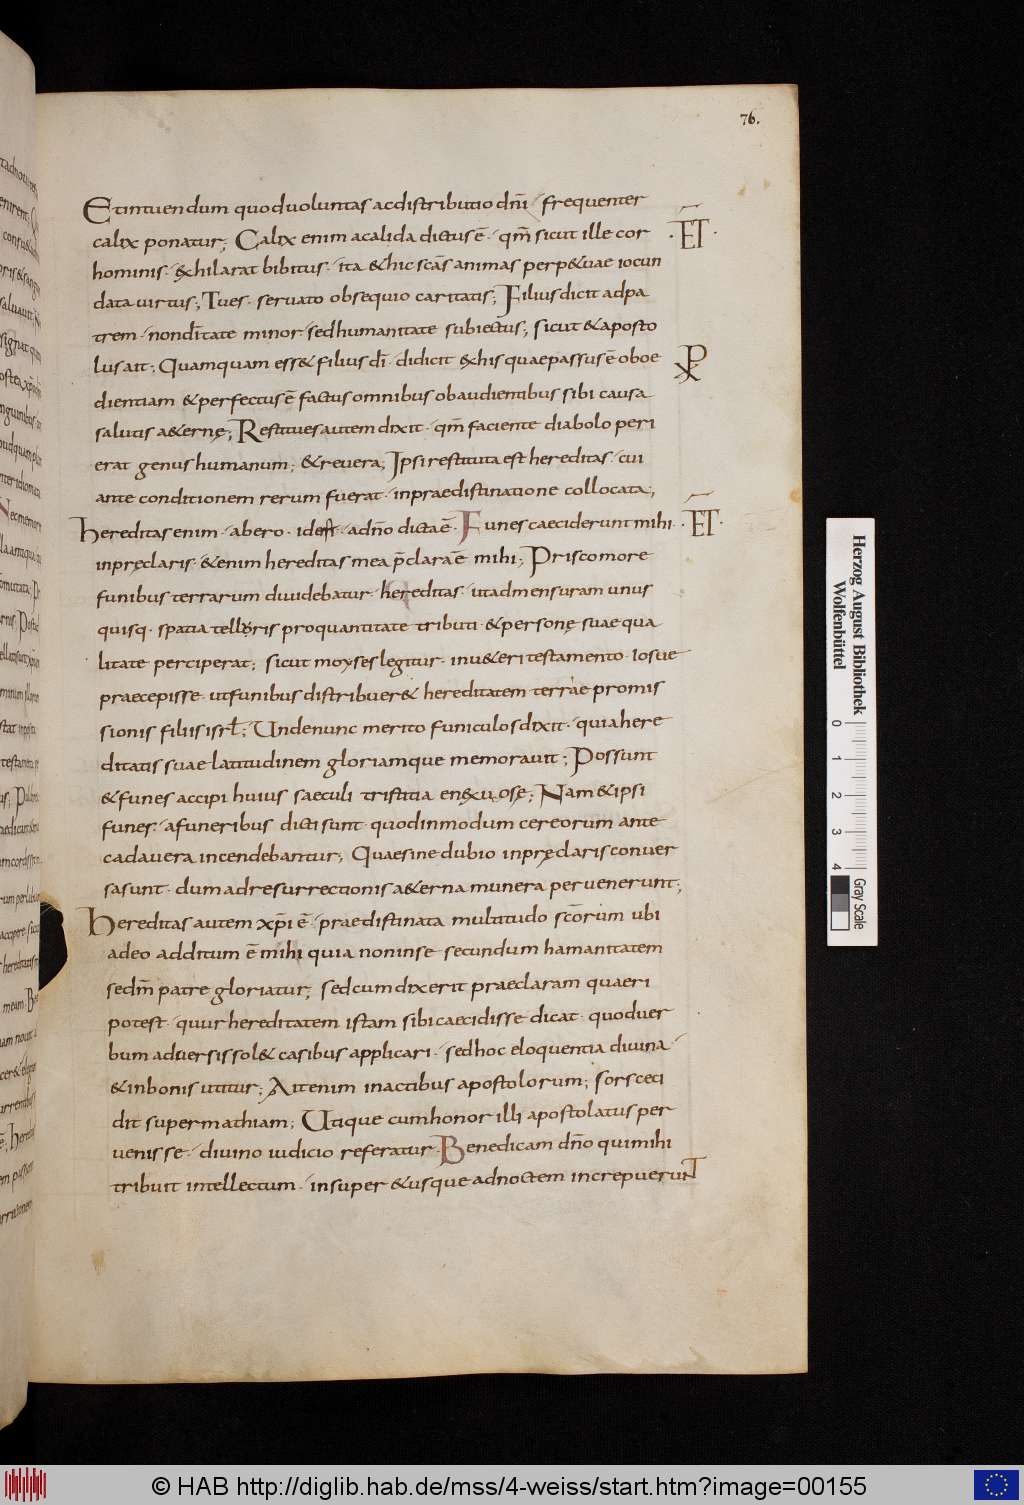 76.
Et intuendum quod voluntas ac distributio dn̄i · frequenter
calix ponatur; Calix enim a calida dictus ē · qm̄ sicut ille cor · ET ·
hominis · exhilarat bibitus · ita & hic scās animas perp&uae iocun
data uirtus; Tu es · seruato obsequio caritatis; Filius dicit ad pa
trem · non dītate minor · sed humanitate subiectus; sicut & aposto
lus ait; Quamquam ess& filius dī · didicit ex his quae passus ē oboe
dientiam & perfectus ē factus omnibus obaudientibus sibi causa
salutis a&ernę; Restitues autem dixit · qm̄ faciente diabolo peri
erat genus humanum; & reuera; Ipsi restituta est hereditas · cui
ante conditionem rerum fuerat · in praedistinatione collocata;
hereditas enim · ab ero · id est · a dn̄o dicta ē · Funes caeciderunt mihi · · ET ·
in pręclaris · & enim hereditas mea p̄clara ē mihi; Prisco more
funibus terrarum diuidebatur · hereditas · ut ad mensuram unus
quisq · spatia telluris pro quantitate tributi · & personę suae qua
litate perciperat; sicut moyses legitur · in u&eri testamento · Iosue
praecepisse · ut funibus distribuer& hereditatem terrae promis
sionis filiis isrl̄; Unde nunc merito funiculos dixit · quia here
ditatis suae latitudinem gloriamque memorauit; Possunt
& funes accipi huius saeculi tristitia
Nam & ipsi
funes · a funeribus dicti sunt · quod in modum cereorum ante
cadauera incendebantur; Quae sine dubio in pręclaris conuer
sa sunt · dum ad resurrectionis a&erna munera peruenerunt;
Hereditas autem xp̄i ē · praedistinata multitudo scōrum ubi
adeo additum ē mihi quia non in se secundum hamanitatem
sed m̄ patre gloriatur; sed cum dixerit praeclaram quaeri
potest · quur hereditatem istam sibi caecidisse dicat · quod uer
bum aduersis sol& casibus applicari · sed hoc eloquentia diuina ·
& in bonis utitur; Ait enim in actibus apostolorum; sors ceci
dit super mathiam; Utique cum honor illi apostolatus per
uenisse · diuino iudicio referatur · Benedicam dn̄o qui mihi
tribuit intellectum · insuper & usque ad noctem increpuerunT
Herzog August Bibliothek
Wolfenbüttel
0 1 2 3 4
Gray Scale
© HAB http://diglib.hab.de/mss/4-weiss/start.htm?image=00155